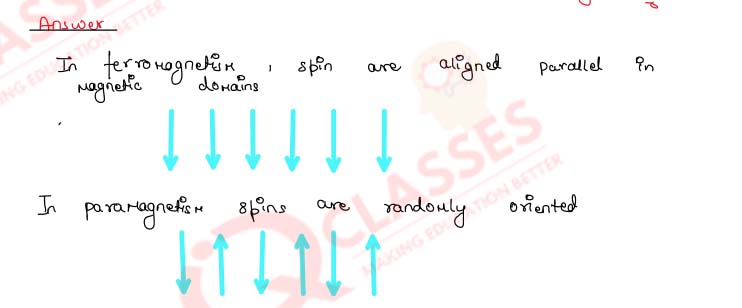 Answer
In ferromagnetism, spin are aligned parallel in
magnetic domains
In paramagnetism spins are randomly oriented
CLASSES
MAKING EDUCATION BETTER